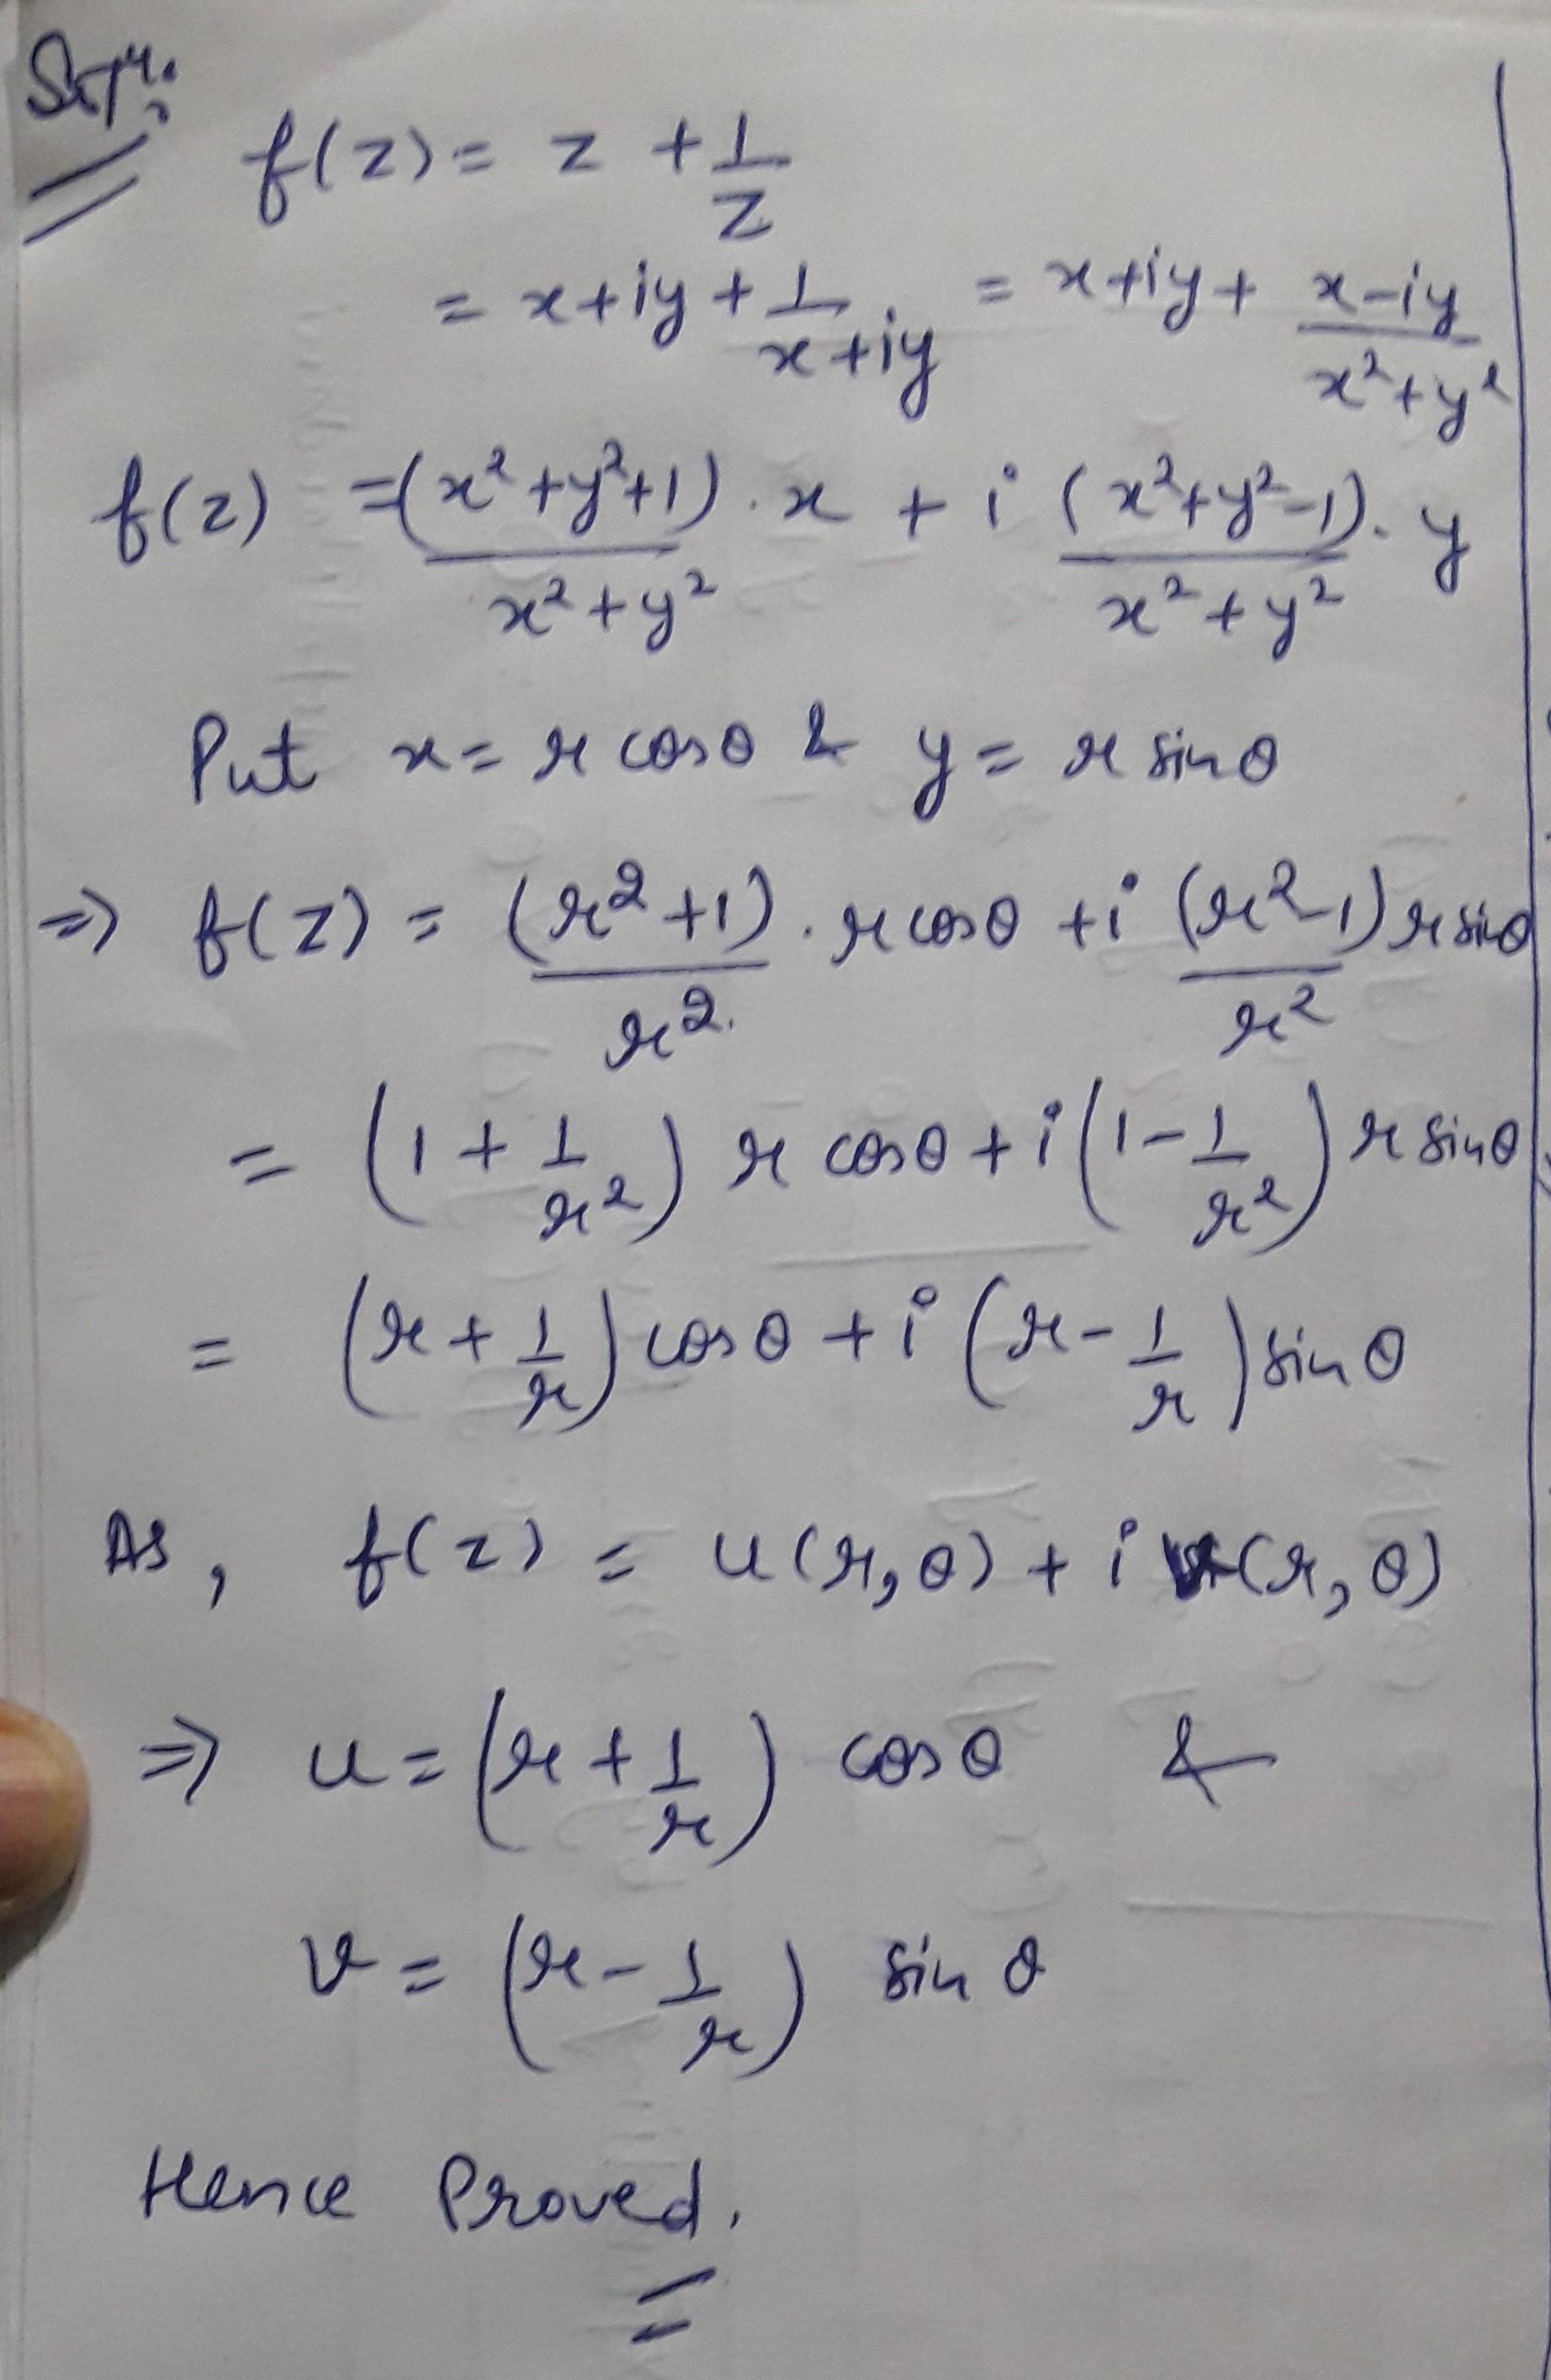 Solⁿ:
f(z) = z + 1/z
= x+iy + 1/(x+iy) = x+iy + (x-iy)/(x²+y²)
f(z) = (x²+y²+1)/(x²+y²) . x + i (x²+y²-1)/(x²+y²) . y
Put x = r cosθ & y = r sinθ
=> f(z) = (r²+1)/r² . r cosθ + i (r²-1)/r² r sinθ
= (1 + 1/r²) r cosθ + i (1 - 1/r²) r sinθ
= (r + 1/r) cosθ + i (r - 1/r) sinθ
As, f(z) = u(r,θ) + i v(r,θ)
=> u = (r + 1/r) cosθ &
v = (r - 1/r) sinθ
Hence Proved.